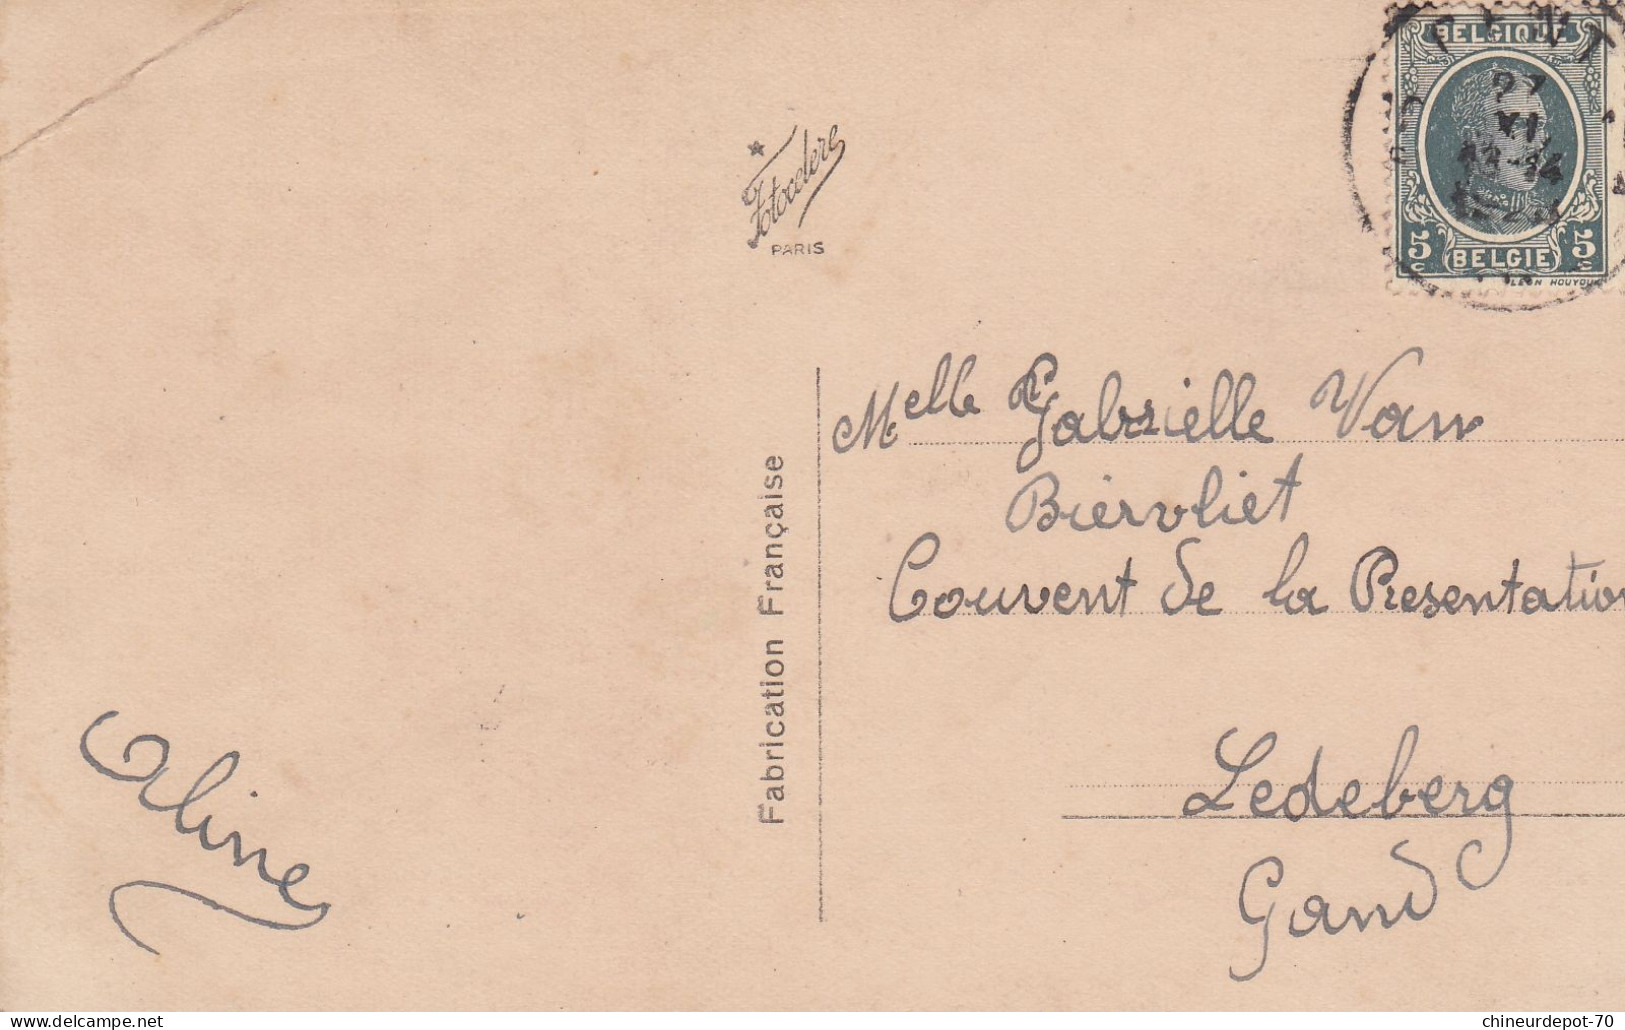 BELGIQUE
5c BELGIE 5c
LÉON HOUYOUX
13-14
Fotocelere
PARIS
Fabrication Française
Melle Gabrielle Van
Biervliet
Couvent de la Presentation
Ledeberg
Gand
Aline
chineurdepot-70